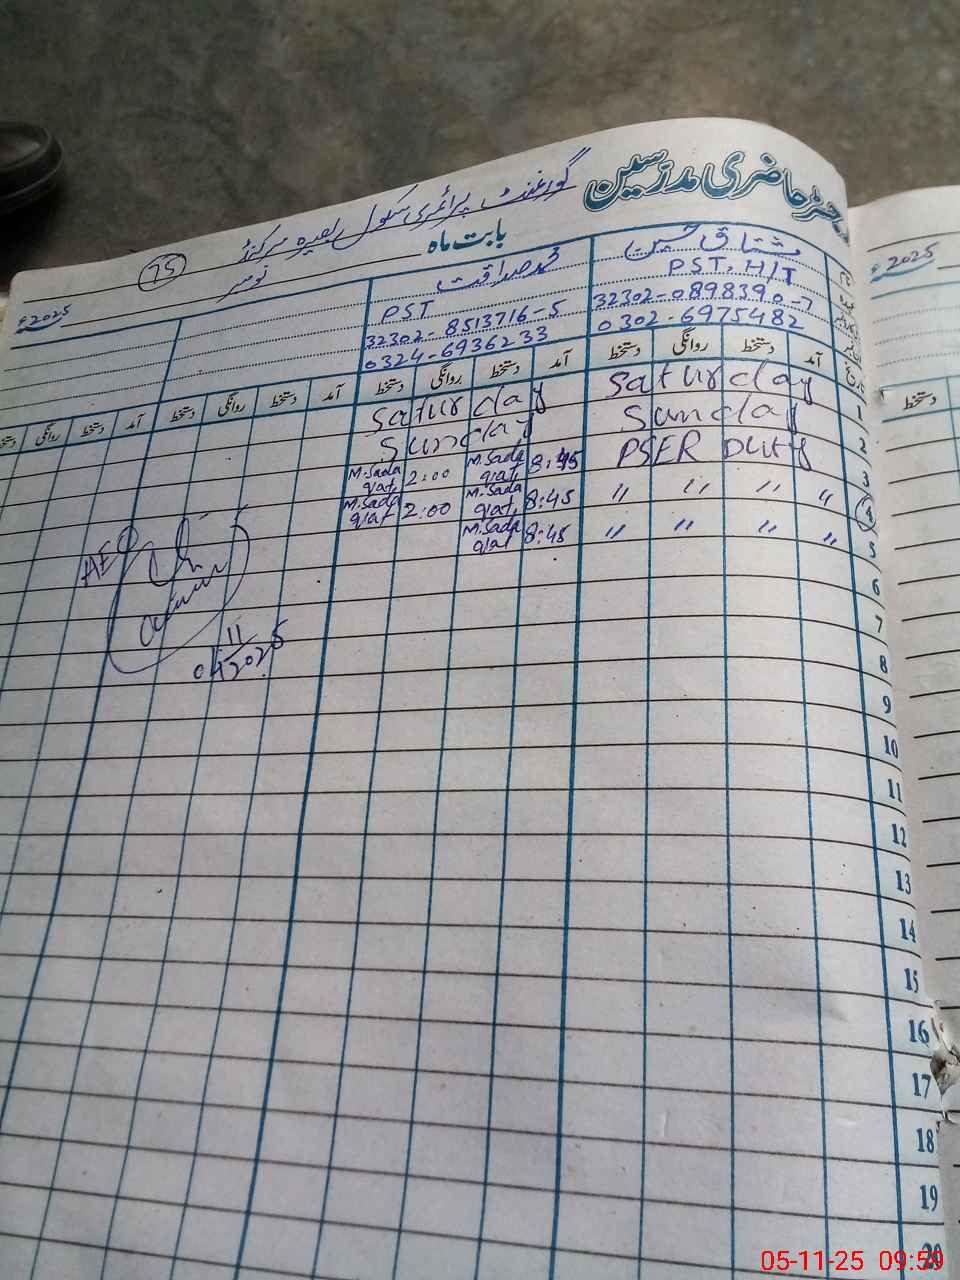 رجسٹر حاضری مدرسین
گورنمنٹ پرائمری سکول
بابت ماہ نومبر 2025ء
75
2025ء
مشتاق حسین
PST, H/T
32302-0898390-7
0302-6975482
محمد صداقت
PST
32302-8513716-5
0324-6936233
آمد دستخط روانگی دستخط آمد دستخط روانگی دستخط آمد دستخط روانگی دستخط آمد دستخط روانگی دستخط
1 Saturday Saturday
2 Sunday Sunday
3 PSER Duty 8:45 M.Sadaqat 2:00 M.Sadaqat
4 " " " " 8:45 M.Sadaqat 2:00 M.Sadaqat
5 " " " " 8:45 M.Sadaqat
6
7
8
9
10
11
12
13
14
15
16
17
18
19
20
AEO
04/11/2025
دستخط
05-11-25 09:59